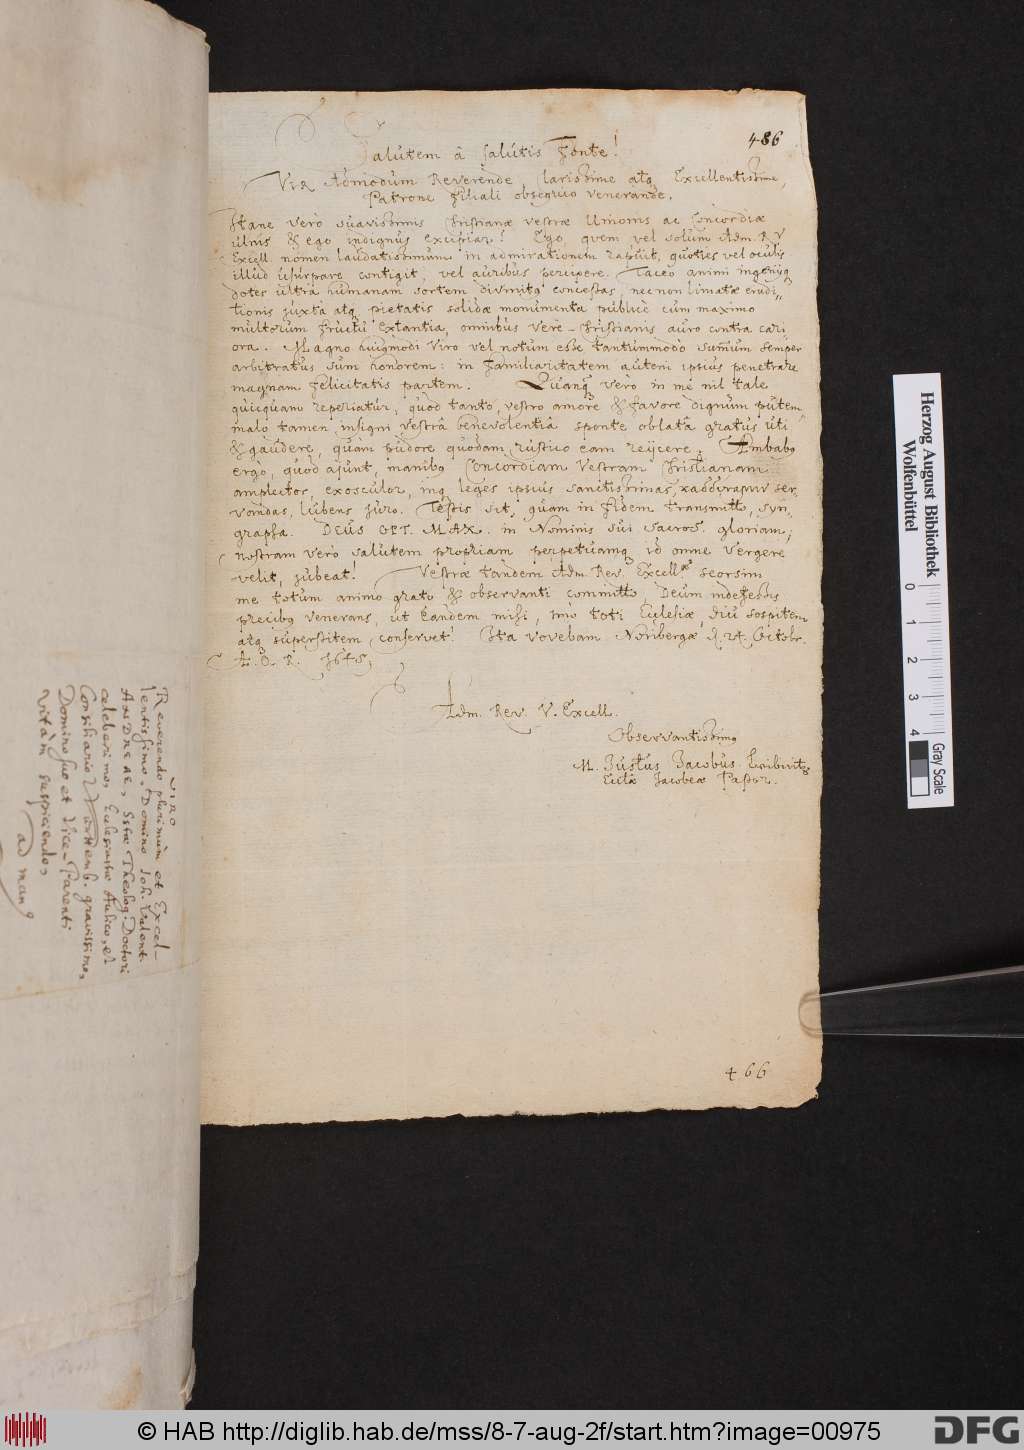 486
Salutem à Salutis Fonte!
VIR Admodum Reverende, Clarissime atq Excellentissime,
Patrone filiali obsequio venerande.
Itane verò suavissimis Christianæ vestræ Unionis ac Concordiæ
ulnis & ego indignus excipiar? Ego, quem vel solum Adm. R. V.
Excell. nomen laudatissimum in admirationem rapuit, quoties vel oculis
illud usurpare contigit, vel auribus percipere. Taceo animi ingeniiq
dotes ultra humanam sortem divinitq concessas, necnon limatæ erudi-
tionis juxta atq pietatis solidæ monumenta publicè cum maximo
multorum fructu extantia, omnibus verè-Christianis auro contra cari
ora. Magno huiusmodi Viro vel notum esse tantummodo sumum semper
arbitratus sum honorem: in familiaritatem autem ipsius penetrare
magnam felicitatis partem. Quanq verò in me nil tale
quicquam reperiatur, quod tanto, vestro amore & favore dignum putem,
malo tamen, insigni vestrâ benevolentiâ sponte oblatâ gratus uti
& gaudere, quàm pudore quodam rustico eam reijcere. Ambabq
ergò, quod ajunt, manibq Concordiam Vestram Christianam
amplector, exosculor, inq leges ipsius sanctissimas, ser
vandas, lubens juro. Testis sit, quam in fidem transmitto, syn
grapha. DEUS OPT. MAX. in Nominis sui Sacros. gloriam,
nostram verò salutem propriam perpetuamq id omne vergere
velit, jubeat! Vestræ tandem Adm. Rev. Excell. seorsim
me totum animo grato & observanti committo, Deum indefessis
precibq venerans, ut Eandem mihi, imò toti Ecclesiæ, diu sospitem
atq superstitem, conservet! Ita vovebam Noribergæ d. 24. Octobr.
A. O. R. 1645.
Adm. Rev. V. Excell.
Observantissimq
M. Justus Jacobus Leibnitz
Eccles Jacobeæ Pastor.
466
VIRO
Reverendo plurimùm et Excel-
lentissimo, Domino Joh. Valent.
ANDREAE, SStæ Theolog. Doctori
celeberrimo, Ecclesiastæ Aulico, et
Consiliario Württenb. gravissimo,
Domino suo et Vice-Parenti
vitàm suspiciendo,
ad manq
Herzog August Bibliothek
Wolfenbüttel
0 1 2 3 4
Gray Scale
© HAB http://diglib.hab.de/mss/8-7-aug-2f/start.htm?image=00975
DFG